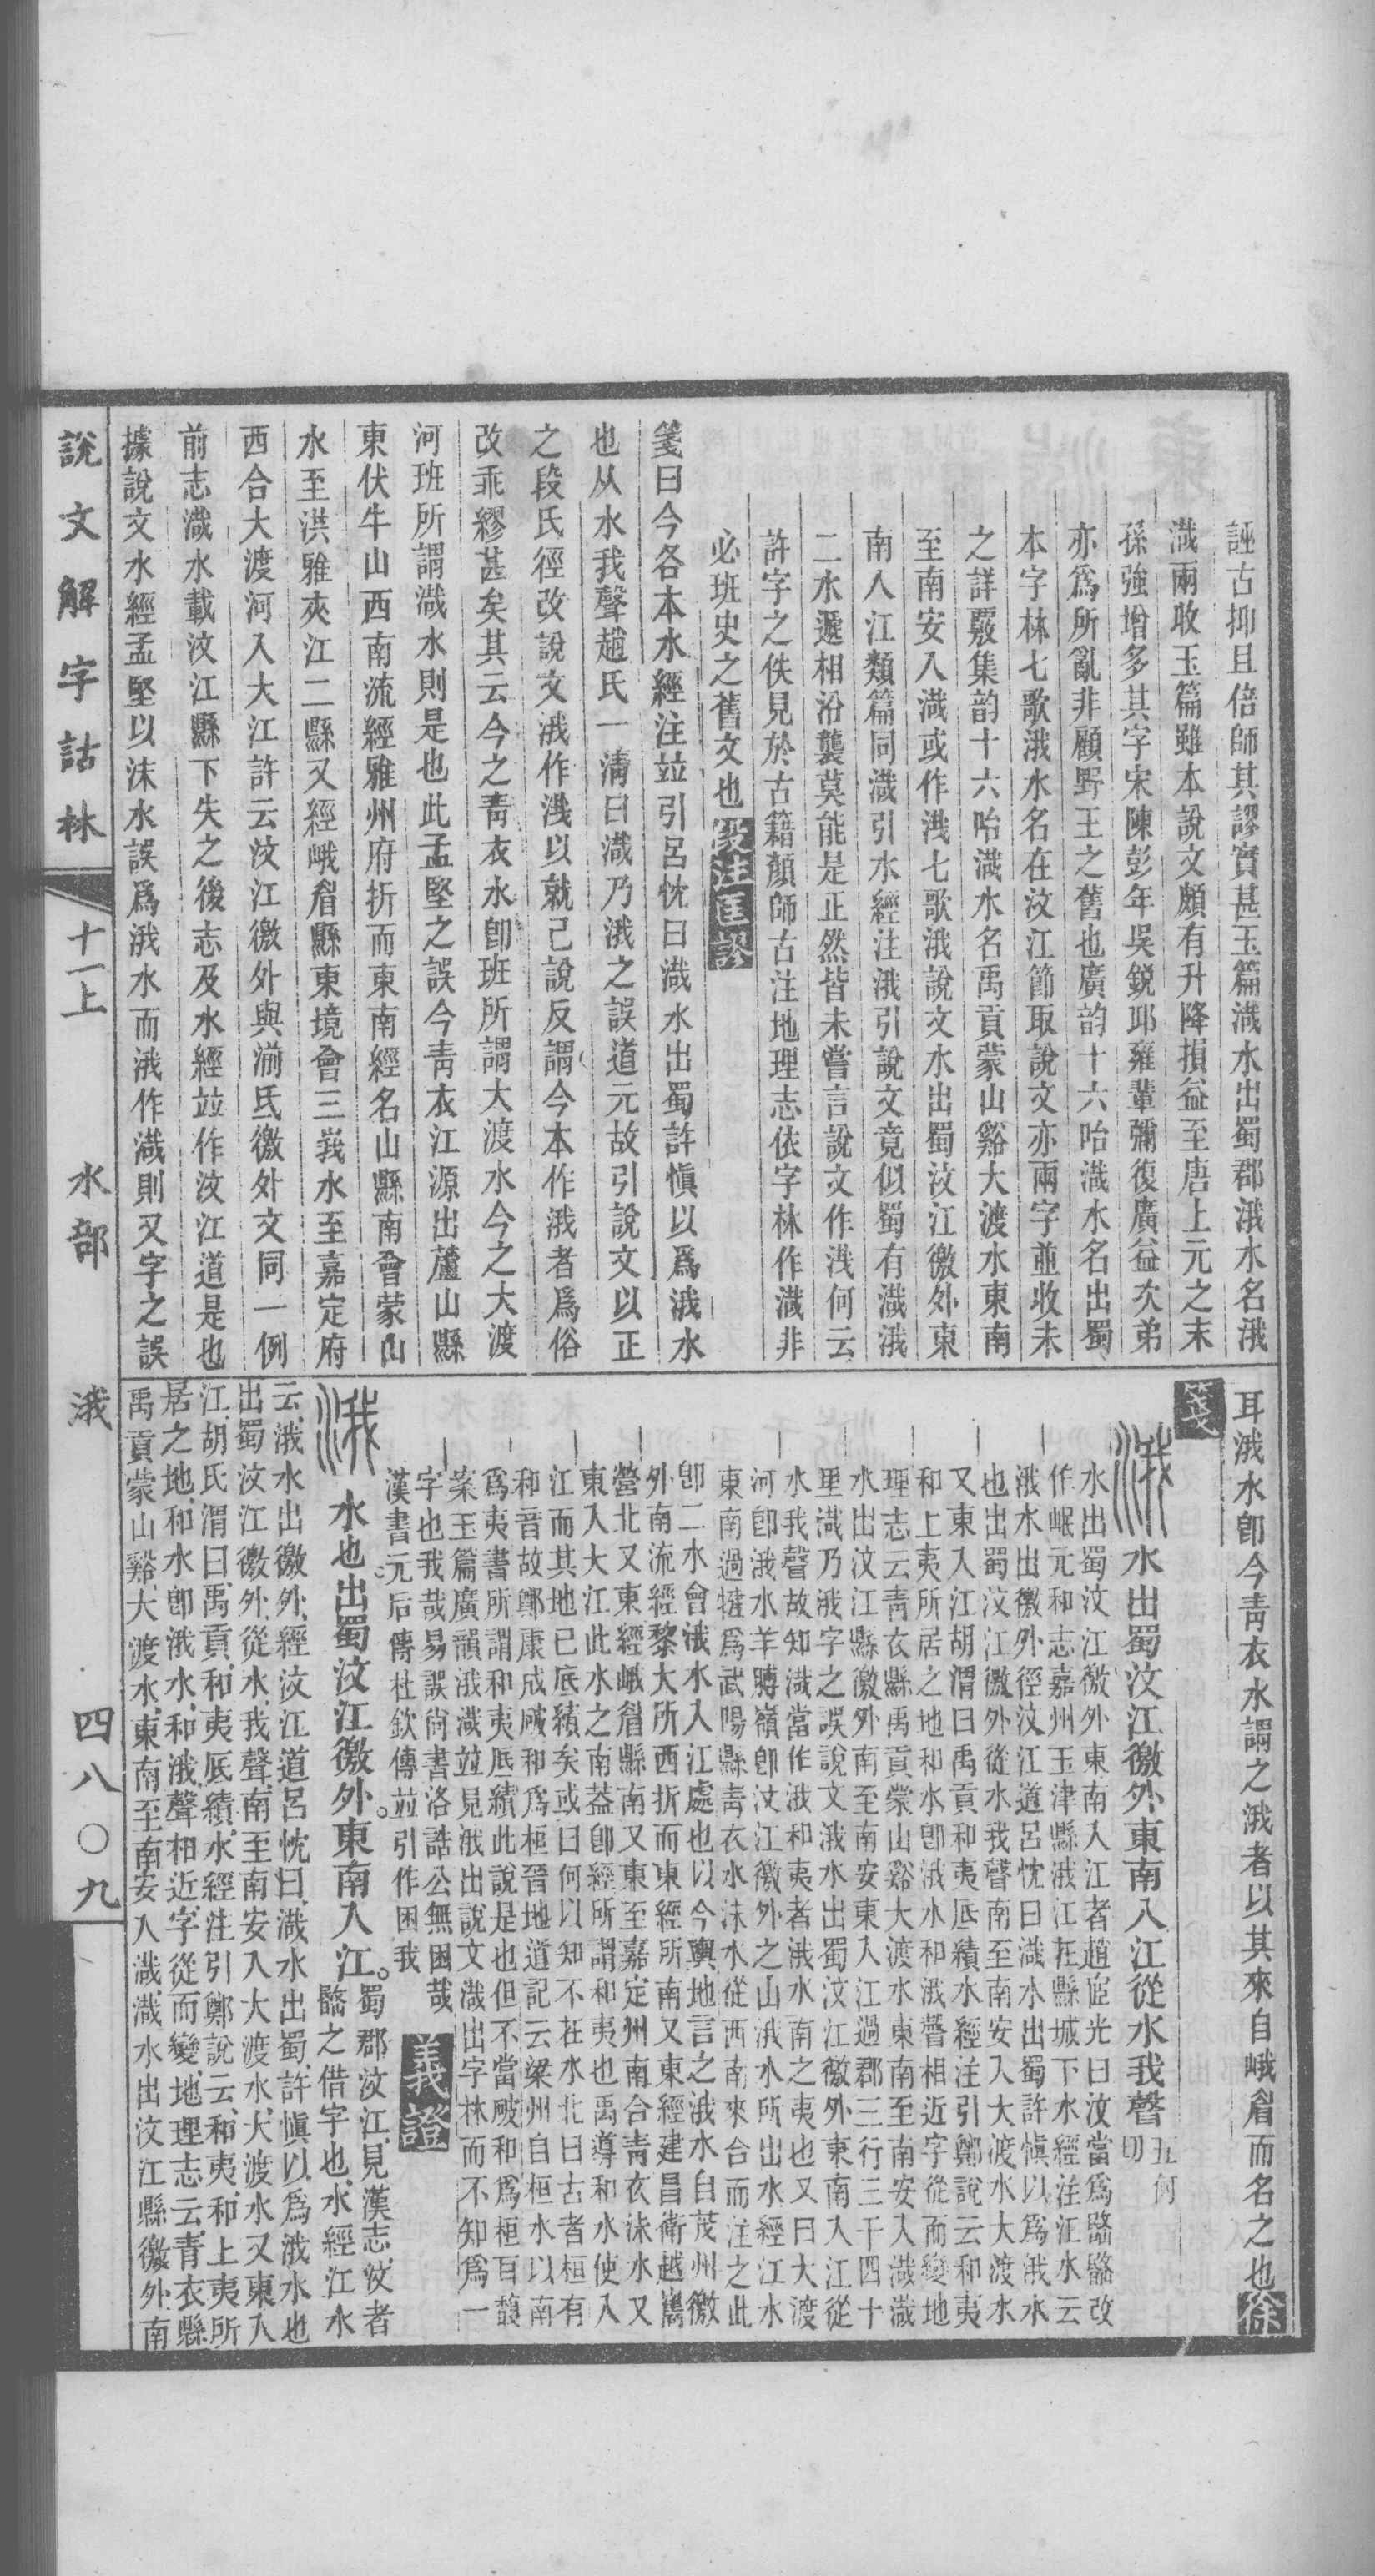 誣古抑且倍師其謬實甚玉篇渽水出蜀郡涐水名涐
渽兩收玉篇雖本說文頗有升降損益至唐上元之末
孫強增多其字宋陳彭年吳銳邱雍輩彌復廣益㳄弟
亦爲所亂非顧野王之舊也廣韵十六咍渽水名出蜀
本字林七歌涐水名在汶江節取說文亦兩字並收未
之詳覈集韵十六咍渽水名禹貢蒙山谿大渡水東南
至南安入渽或作洅七歌涐說文水出蜀汶江徼外東
南入江類篇同渽引水經注涐引說文竟似蜀有渽涐
二水遞相沿襲莫能是正然皆未嘗言說文作洅何云
許字之佚見於古籍顏師古注地理志依字林作渽非
必班史之舊文也段注匡謬
箋曰今各本水經注竝引呂忱曰渽水出蜀許愼以爲涐水
也从水我聲趙氏一清曰渽乃涐之誤道元故引說文以正
之段氏徑改說文涐作洅以就己說反謂今本作涐者爲俗
改乖繆甚矣其云今之靑衣水卽班所謂大渡水今之大渡
河班所謂渽水則是也此孟堅之誤今靑衣江源出蘆山縣
東伏牛山西南流經雅州府折而東南經名山縣南會蒙山
水至洪雅夾江二縣又經峨眉縣東境會三峩水至嘉定府
西合大渡河入大江許云汶江徼外與湔氐徼外文同一例
前志渽水載汶江縣下失之後志及水經竝作汶江道是也
據說文水經孟堅以沫水誤爲涐水而涐作渽則又字之誤
耳涐水卽今靑衣水謂之涐者以其來自峨眉而名之也徐
箋
涐水出蜀汶江徼外東南入江從水我聲五何切
水出蜀汶江徼外東南入江者趙宧光曰汶當爲𨻳𨻳改
作岷元和志嘉州玉津縣涐江在縣城下水經注江水云
涐水出徼外徑汶江道呂忱曰渽水出蜀許愼以爲涐水
也出蜀汶江徼外從水我聲南至南安入大渡水大渡水
又東入江胡渭曰禹貢和夷厎績水經注引鄭說云和夷
和上夷所居之地和水卽涐水和涐聲相近字從而變地
理志云靑衣縣禹貢蒙山谿大渡水東南至南安入渽渽
水出汶江縣徼外南至南安東入江過郡三行三千四十
里渽乃涐字之誤說文涐水出蜀汶江徼外東南入江從
水我聲故知渽當作涐和夷者涐水南之夷也又曰大渡
河卽涐水羊膊嶺卽汶江徼外之山涐水所出水經江水
東南過犍爲武陽縣靑衣水沫水從西南來合而注之此
卽二水會涐水入江處也以今輿地言之涐水自茂州徼
外南流經黎大所西折而東經所南又東經建昌衛越嶲
營北又東經峨眉縣南又東至嘉定州南合靑衣沫水又
東入大江此水之南葢卽經所謂和夷也禹導和水使入
江而其地已厎績矣或曰何以知不在水北曰古者桓有
和音故鄭康成破和爲桓晉地道記云梁州自桓水以南
爲夷書所謂和夷厎績此說是也但不當破和爲桓百馥
案玉篇廣韻涐渽竝見涐出說文渽出字林而不知爲一
字也我哉易誤尙書洛誥公無困哉
漢書元后傳杜欽傳竝引作困我義證
涐水也。出蜀汶江徼外。東南入江。蜀郡汶江、見漢志、汶者
𨻳之借字也、水經江水
云、涐水出徼外、經汶江道、呂忱曰、渽水出蜀、許愼以爲涐水也
出蜀汶江徼外、從水、我聲、南至南安入大渡水、大渡水又東入
江、胡氏渭曰、禹貢、和夷厎績、水經注引鄭說云、和夷、和上夷所
居之地、和水卽涐水、和涐聲相近、字從而變、地理志云、靑衣縣
禹貢蒙山谿、大渡水、東南至南安入渽、渽水出汶江縣徼外南
說文解字詁林
十一上
水部
涐
四八〇九